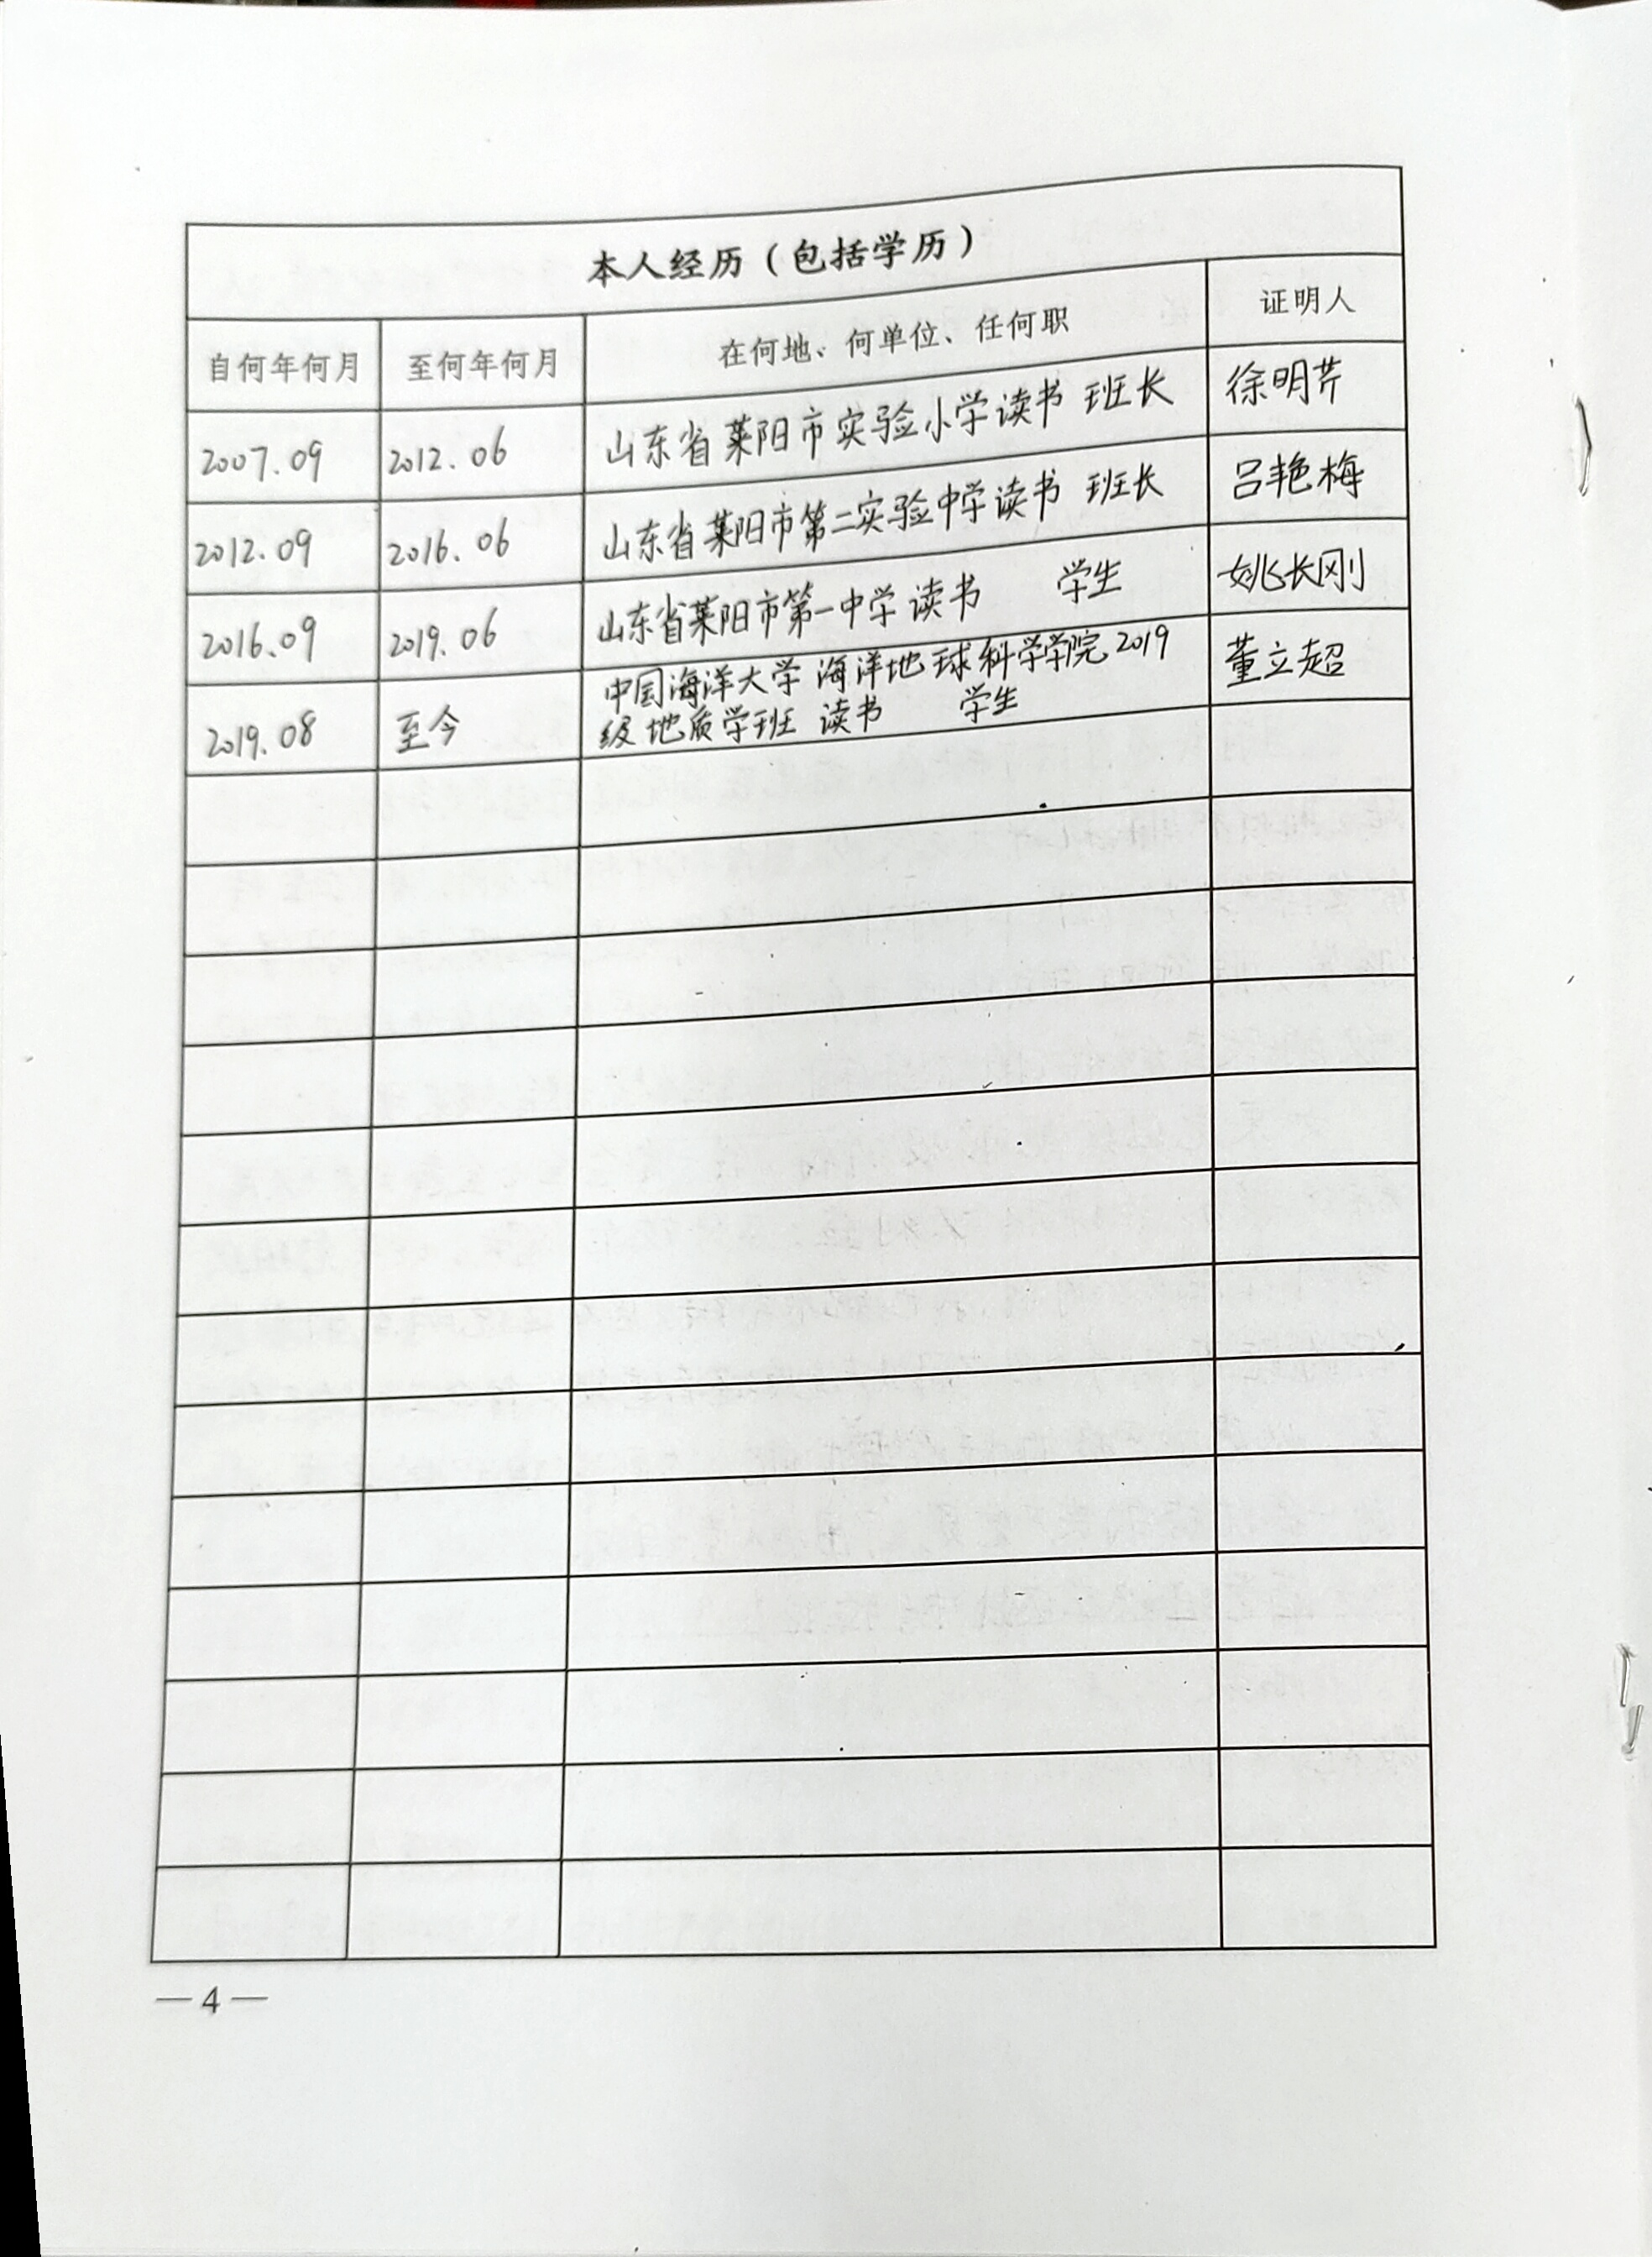 本人经历（包括学历）
自何年何月 至何年何月 在何地、何单位、任何职 证明人
2007.09 2012.06 山东省莱阳市实验小学读书 班长 徐明芹
2012.09 2016.06 山东省莱阳市第二实验中学读书 班长 吕艳梅
2016.09 2019.06 山东省莱阳市第一中学读书 学生 姚长刚
2019.08 至今 中国海洋大学 海洋地球科学学院2019
级地质学班 读书 学生 董立超
—4—